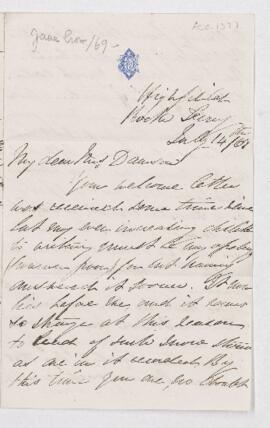 Highfield
Rock Ferry
July 14th/69
My dear Mrs Dawson
Your welcome letter
was received some time since
but my ever increasing dislike
to writing must be my apology
(however poor) for not having
answered it sooner. It now
lies before me and it seems
so strange at this season
to read of such snow storms
as are in it recorded. By
this time you are, no doubt